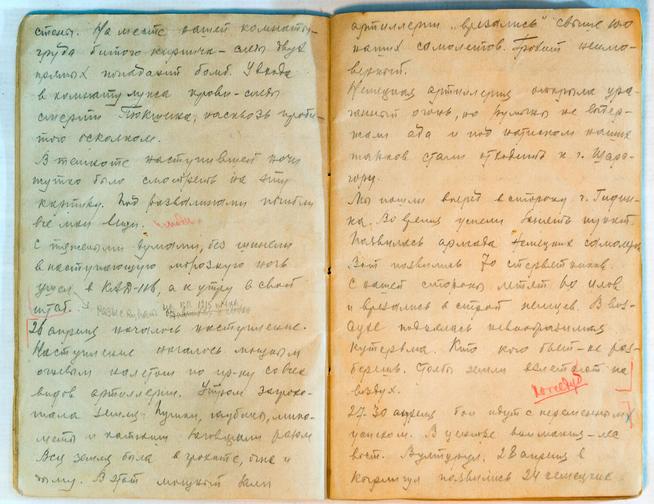 стены. На месте нашей комнаты-
груда битого кирпича - следы двух
прямых попаданий бомб. У входа
в комнату лужа крови - следы
смерти Тюкшева, насквозь проби-
того осколком.
В темноте наступившей ночи
жутко было смотреть на эту
картину. Под развалинами погибли
все мои вещи.
С тяжелыми думами, без шинели
в наступающую морозную ночь
ушел в КАД-116, а к утру в свой
штаб.
28 апреля началось наступление.
Наступление началось мощным
огневым налетом по пр-ку со всех
видов артиллерии. Утром загрохо-
тала земля: пушки, гаубицы, мино-
меты и катюши возвещали разом
Вся земля была в грохоте, огне и
дыму. В этот мощный вали
артиллерии "врезались" свыше 100
наших самолетов. Грохот неимо-
верный.
Немецкая артиллерия открыла ура-
ганный огонь, но румыны не выдер-
жали ада и под натиском наших
танков стали отходить к г. Шара-
гору.
Мы пошли вперед в сторону г.
ка. Во время успели занять пункт.
Появилась армада немецких самолетов
Вот появились 70 стервятников.
С нашей стороны летят 60 илов
и врезались в строй немцев. В воз-
духе поднялась невообразимая
кутерьма. Кто кого бьет - не раз-
берешь. Столбы земли взлетают на
воздух.
27-30 апреля бои идут с переменным
успехом. В центре внимания - лес
вост. Вултурул. 28 апреля в
появились 24 немецких